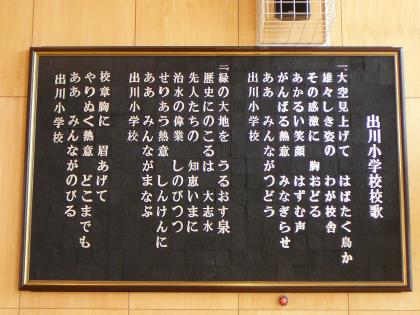 出川小学校校歌
一大空見上げて はばたく鳥か
雄々しき姿の わが校舎
その感激に 胸おどる
あかるい笑顔 はずむ声
がんばる熱意 みなぎらせ
ああ みんながつどう
出川小学校
二緑の大地を うるおす泉
歴史にのこるは 大志水
先人たちの 知恵いまに
治水の偉業 しのびつつ
せりあう熱意 しんけんに
ああ みんながまなぶ
出川小学校
校章胸に 眉あげて
やりぬく熱意 どこまでも
ああ みんながのびる
出川小学校